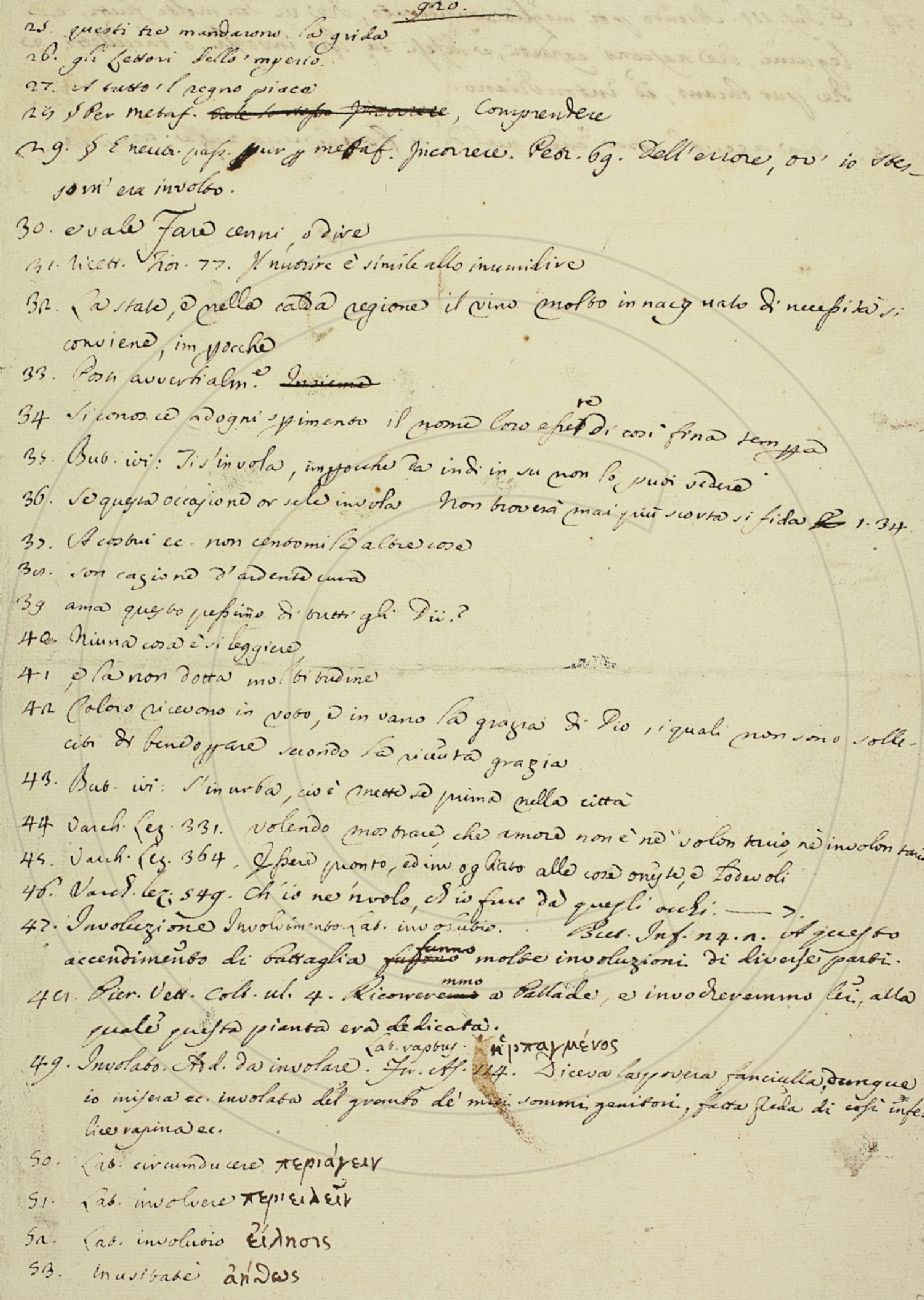 920.
25. questi tre mandarono la grida
26. gli Lettori dello 'mperio.
27. A tutto 'l regno piace
28 § Per metaf. vale lo stesso Incorrere, Comprendere
29. § E neutr. pass. pur p metaf. Incorrere. Petr. 69. Dell'errore, ov' io stes-
so m' era involto.
30. e vale Fare cenni, o dire
31. Ricett. Fior. 77. Il nutrire è simile allo inumidire
32. La state, e nella calda regione il vino molto innacquato di necessità si
conviene, impocchè
33. Posti avverbialm.e Insieme
34 Si conosce ad ogni spimento il nome loro essere di così fina tempa
35. But. ivi: Ti s'invola, impocchè da indi in su non lo puoi vedere
36. Se questa occasione or se le invola Non troverà mai più scorta sì fida 1. 34.
37. A costui ec. non centomila altre cose
38. son cagione d'ardente cura
39 ama questo pessimo di tutti gli Dii?
40 Niuna cosa è sì leggiere
41 e la non dotta moltitudine
42 Coloro ricevono in voto, e in vano la grazia di Dio, i quali non sono solle-
citi di bene oppare secondo la ricevuta grazia
43. But. ivi: S'inurba, cioè mette se prima nella città
44 Varch. Lez. 331. volendo mostrare, che amore non è nè volontario, nè involontario
45. Varch. Lez. 364. Essere pronto, ed invogliato alle cose oneste, e lodevoli
46. Varch. lez. 549. Ch' io ne 'nvolo, ch' io fure da quegli occhi. —— 7.
47. Involuzione Involvimento. Lat. involutio. But. Inf. 24. 2. A questo
accendimento di battaglia fussono funno molte involuzioni di diverse parti.
48. Pier. Vett. Colt. ul. 4. Ricorreremmo a Pallade, e invocheremmo lei, alla
quale questa pianta era dedicata.
49. Involato. Ad. da involare. Lat. raptus. ἡρπαγμένος Fr. As. 114. Diceva la povera fanciulla, dunque
io misera ec. involata del grembo de' miei sommi genitori, fatta preda di così infe-
lice rapina ec.
50. Lat. circumducere περιάγειν
51. Lat. involvere περιειλεῖν
52. Lat. involutio εἴλησις
53. inusitatè ἀήθως